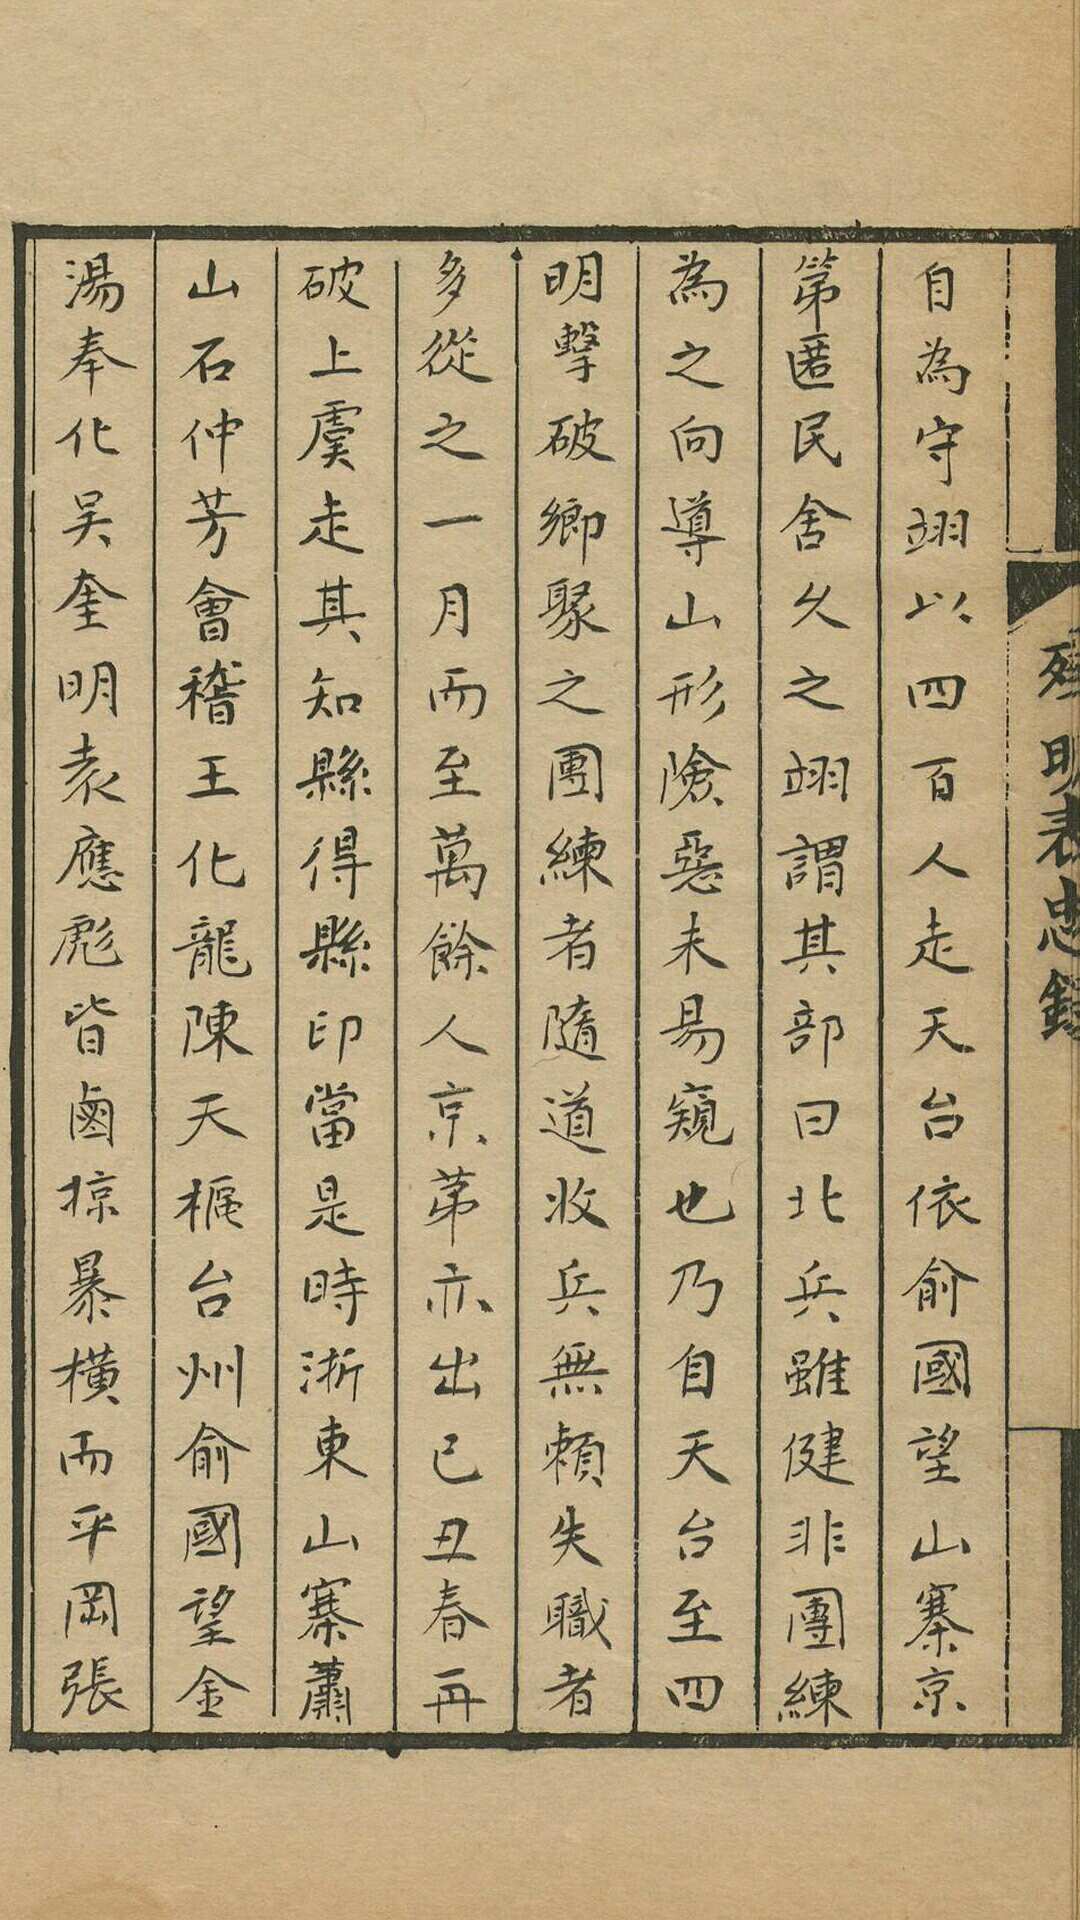 殘明表忠錄
自為守翊以四百人走天台依俞國望山寨京
第匿民舍久之翊謂其部曰北兵雖健非團練
為之向導山形險惡未易窺也乃自天台至四
明擊破鄉聚之團練者隨道收兵無賴失職者
多從之一月而至萬餘人京第亦出己丑春再
破上虞走其知縣得縣印當是時浙東山寨蕭
山石仲芳會稽王化龍陳天樞台州俞國望金
湯奉化吳奎明袁應彪皆鹵掠暴橫而平岡張